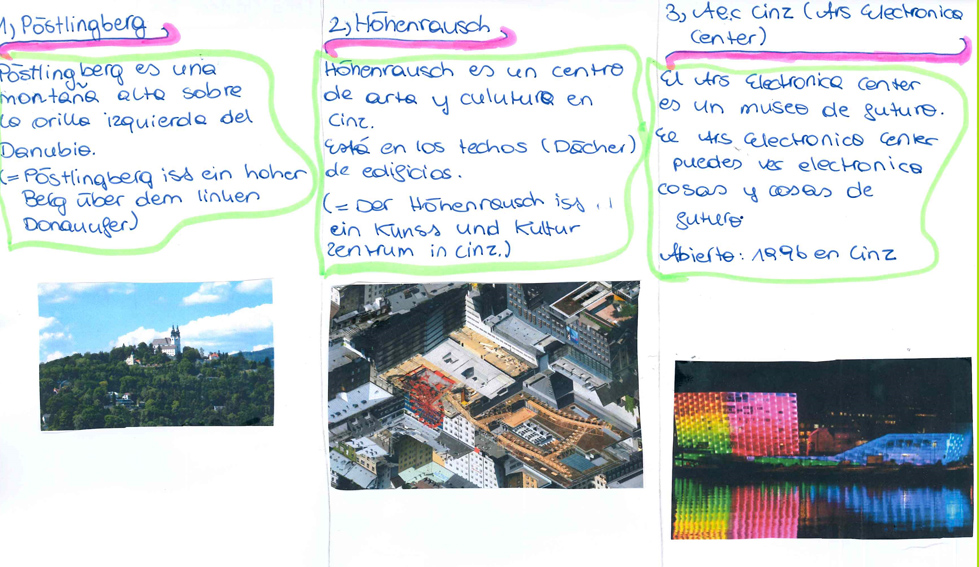 1, Pöstlingberg
Pöstlingberg es una
montaña alta sobre
la orilla izquierda del
Danubio.
(= Pöstlingberg ist ein hoher
Berg über dem linken
Donauufer)
2, Höhenrausch
Höhenrausch es un centro
de arta y culutura en
Linz.
Está en los techos (Dächer)
de edificios.
(= Der Höhenrausch ist
ein Kunss und Kultur
zentrum in Linz.)
3, Aec Linz (Ars Electronica
Center)
El Ars Electronica center
es un museo de futuro.
El Ars Electronica Center
puedes ver electronica
cosas y cosas de
futuro.
Abierto: 1996 en Linz